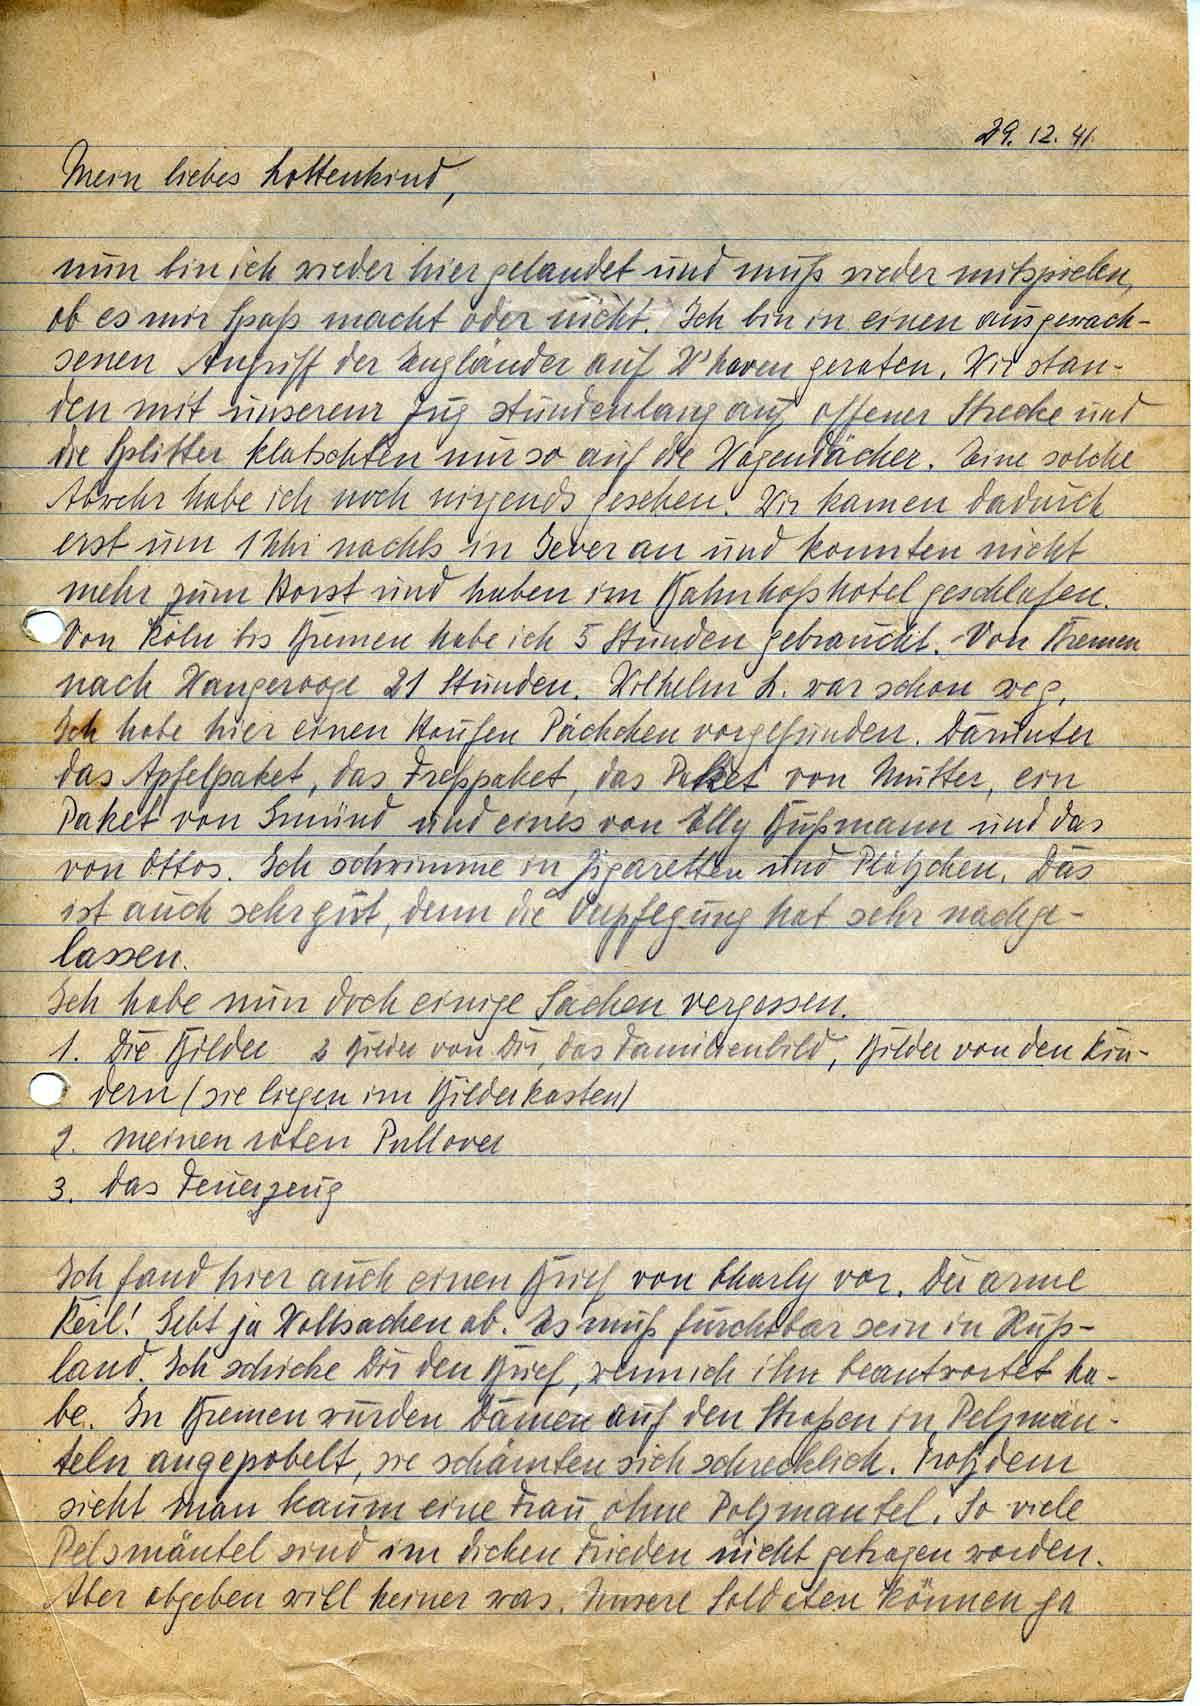 29. 12. 41.
Mein liebes Lottenkind,
nun bin ich wieder hier gelandet und muß wieder mitspielen,
ob es mir Spaß macht oder nicht. Ich bin in einen ausgewach-
senen Angriff der Engländer auf W'haven geraten. Wir stan-
den mit unserem Zug stundenlang auf offener Strecke und
die Splitter klatschten nur so auf die Wagendächer. Eine solche
Abwehr habe ich noch nirgends gesehen. Wir kamen dadurch
erst um 1 Uhr nachts in Jever an und konnten nicht
mehr zum Horst und haben im Bahnhofshotel geschlafen.
Von Köln bis Bremen habe ich 5 Stunden gebraucht. Von Bremen
nach Wangerooge 21 Stunden. Wilhelm L. war schon weg.
Ich habe hier einen Haufen Päckchen vorgefunden. Darunter
das Apfelpaket, das Freßpaket, das Paket von Mutter, ein
Paket von Gmünd und eines von Elly Bußmann und das
von Ottos. Ich schwimme in Zigaretten und Plätzchen. Das
ist auch sehr gut, denn die Verpflegung hat sehr nachge-
lassen.
Ich habe nun doch einige Sachen vergessen.
1. Die Bilder 2 Bilder von Dir, das Familienbild, Bilder von den Kin-
dern (sie liegen im Bilderkasten)
2. meinen roten Pullover
3. das Feuerzeug
Ich fand hier auch einen Brief von Charly vor. Der arme
Kerl! Gebt ja Wollsachen ab. Es muß furchtbar sein in Ruß-
land. Ich schicke Dir den Brief, wenn ich ihn beantwortet ha-
be. In Bremen wurden Damen auf den Straßen in Pelzmän-
teln angepöbelt, sie schämten sich schrecklich. Trotzdem
sieht man kaum eine Frau ohne Pelzmantel. So viele
Pelzmäntel sind im dicken Frieden nicht getragen worden.
Aber abgeben will keiner was. Unsere Soldaten können ja